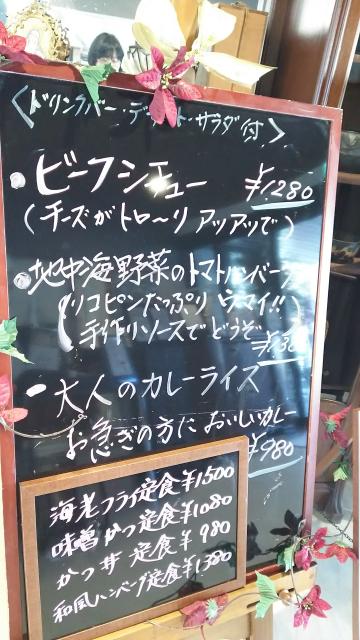 〈ドリンクバー・デザート・サラダ付〉
ビーフシチュー ¥1.280
(チーズがトロ〜リ アツアツで)
地中海野菜のトマトハンバーグ
(リコピンたっぷり ウマイ!!
手作りソースでどうぞ
大人のカレーライス
お急ぎの方に おいしいカレー
¥980
海老フライ定食¥1500
味噌かつ定食¥1080
かつ丼 定食¥980
和風ハンバーグ定食¥1.380